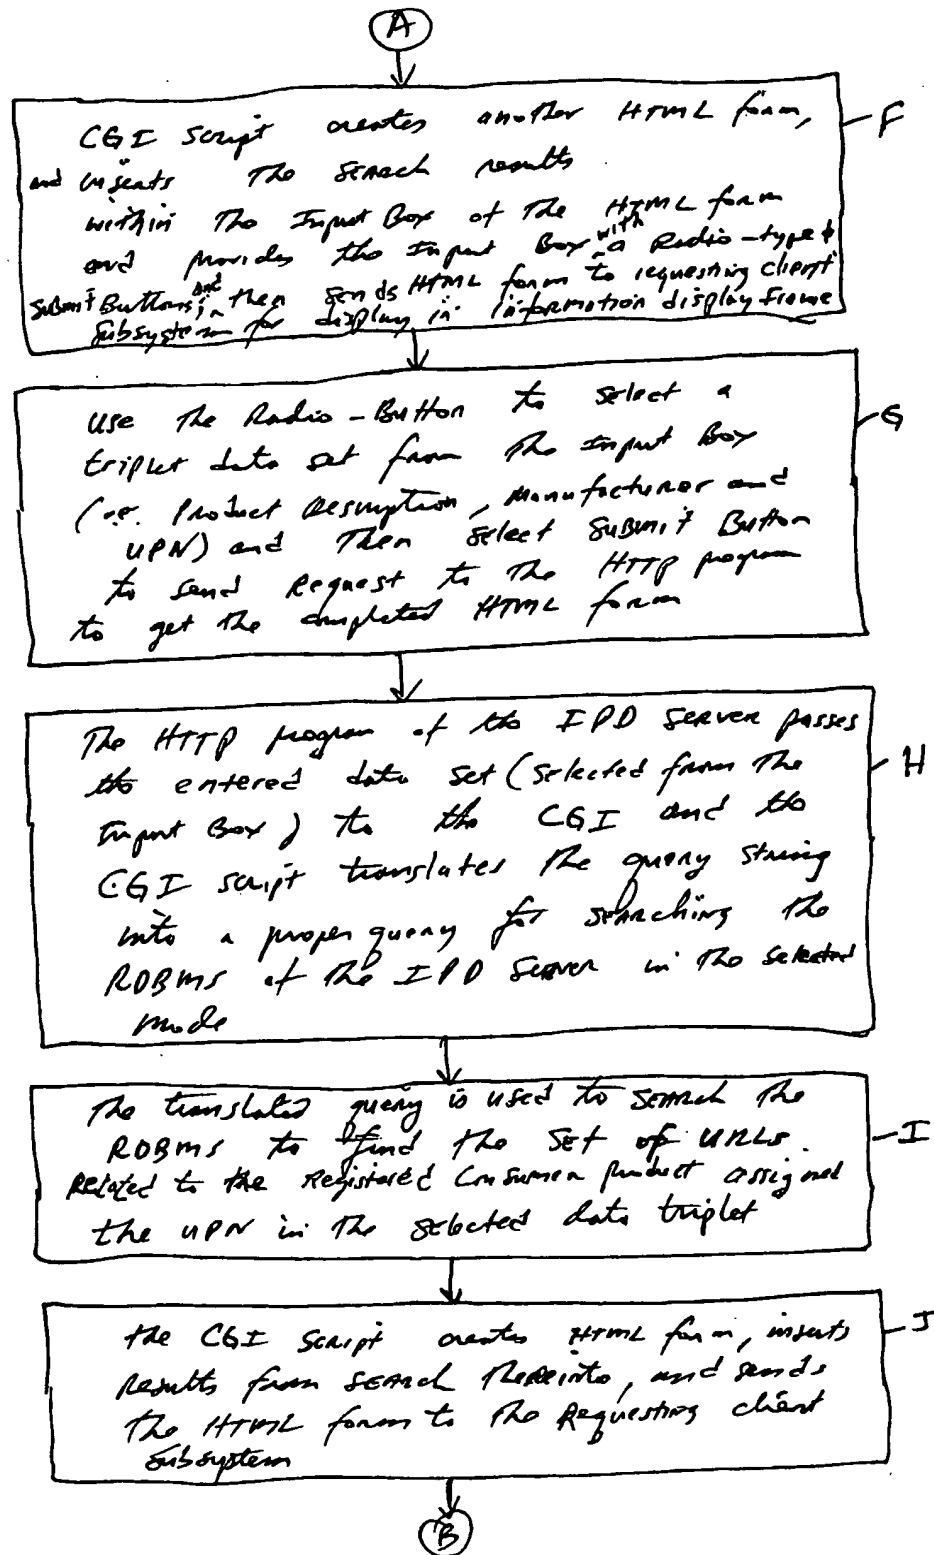 A
CGI Script creates another HTML form, F
and inserts the search results
within the Input Box of the HTML form
and provides the Input Box with a Radio-type &
Submit Buttons, and then sends HTML form to requesting client
Subsystem for display in information display frame
Use the Radio-Button to select a G
triplet data set from the Input Box
(i.e. Product Description, Manufacturer and
UPN) and then select Submit Button
to send Request to the HTTP program
to get the completed HTML form
The HTTP program of the IPD Server passes
the entered data set (selected from the H
Input Box) to the CGI and the
CGI script translates the query string
into a proper query for searching the
RDBMS of the IPD Server in the selected
mode
The translated query is used to search the
RDBMS to find the set of URLs I
Related to the Registered Consumer product assigned
the UPN in the selected data triplet
the CGI Script creates HTML form, inserts J
results from search thereinto, and sends
the HTML form to the Requesting client
Subsystem
B